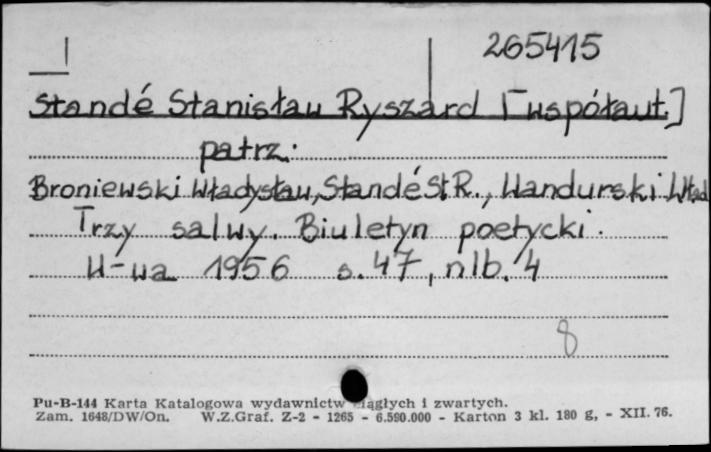 265415
Standé Stanisław Ryszard [współaut.]
patrz:
Broniewski Władysław, Standé St. R., Wandurski Wład
Trzy salwy. Biuletyn poetycki.
W-wa 1956 s. 47, nlb. 4
8
Pu-B-144 Karta Katalogowa wydawnictw ciągłych i zwartych.
Zam. 1648/DW/On. W.Z.Graf. Z-2 - 1265 - 6.590.000 - Karton 3 kl. 180 g, - XII. 76.